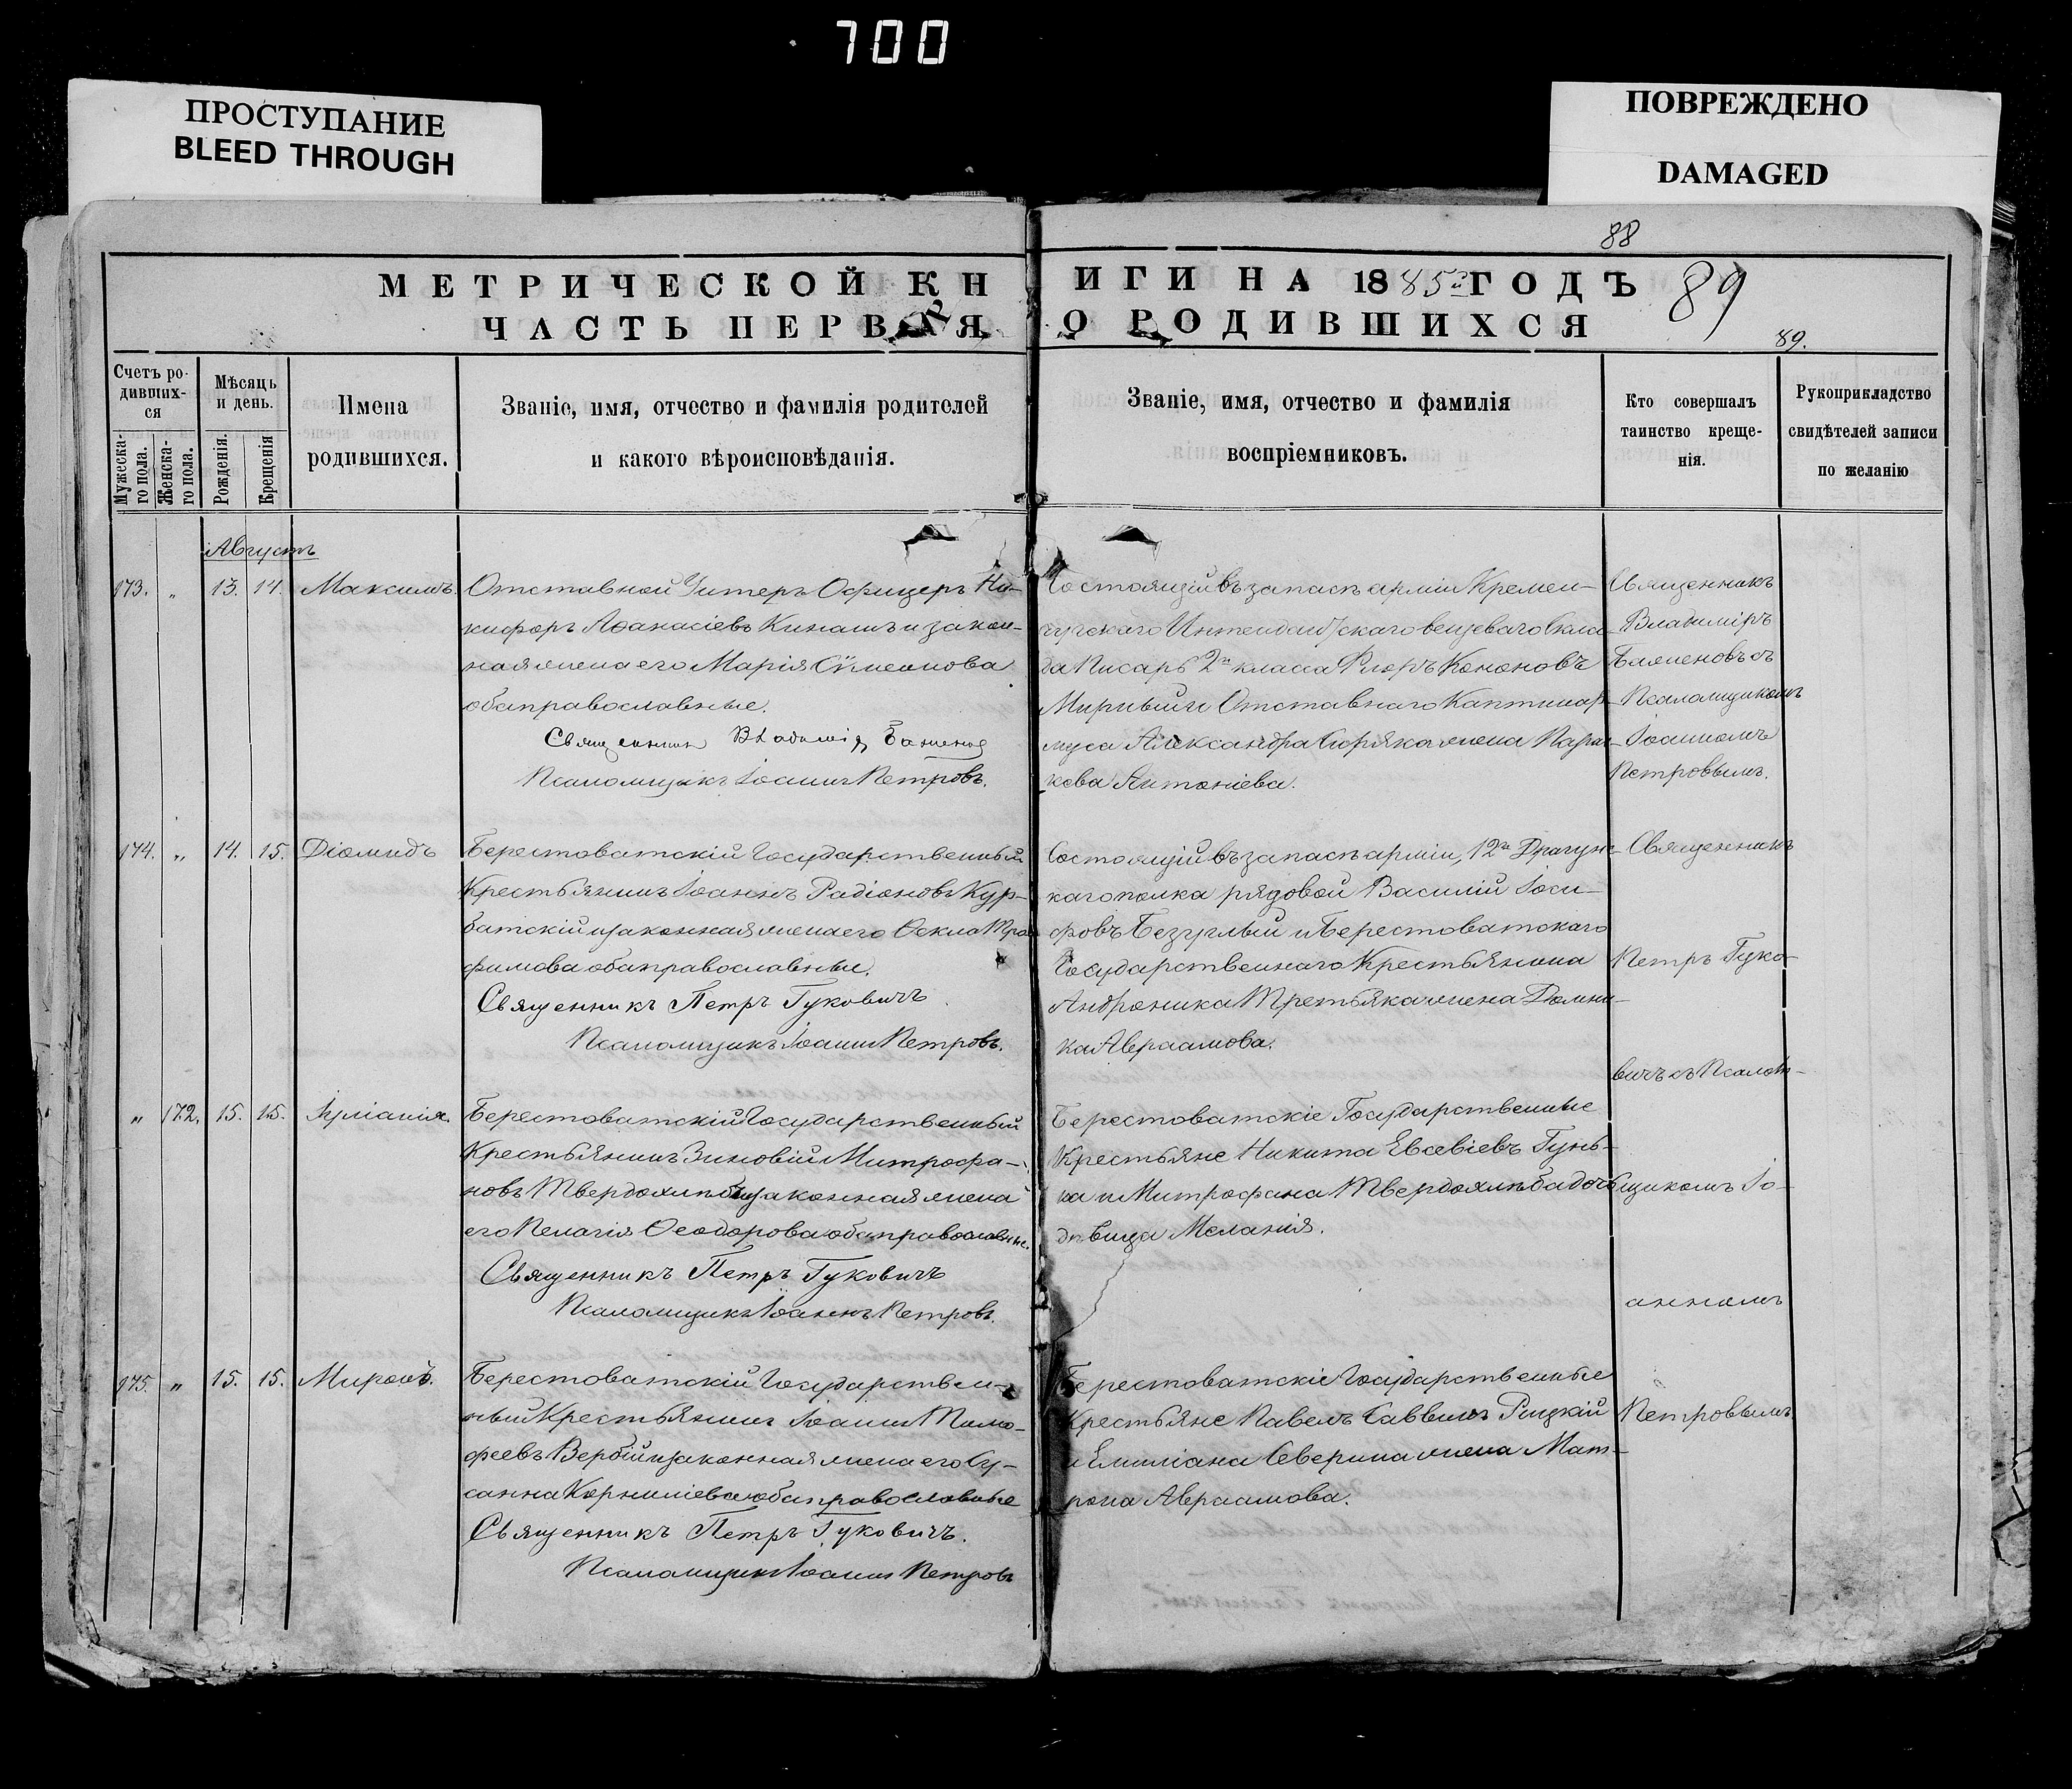 700
ПРОСТУПАНИЕ
BLEED THROUGH
ПОВРЕЖДЕНО
DAMAGED
88
МЕТРИЧЕСКОЙ КНИГИ НА 1885й ГОДЪ
89
ЧАСТЬ ПЕРВАЯ О РОДИВШИХСЯ
89.
Счетъ ро-
дивших-
ся
Мужеска-
го пола.
Женска-
го пола.
Мѣсяць
и день.
Рожденія.
Крещенія
Имена
родившихся.
Званіе, имя, отчество и фамилія родителей
и какого вѣроисповѣданія.
Званіе, имя, отчество и фамилія
воспріемниковъ.
Кто совершалъ
таинство креще-
нія.
Рукоприкладство
свидѣтелей записи
по желанію
Августъ
173. " 13. 14. Максимъ.
Отставной Унтеръ Офицеръ Ни-
кифоръ Аѳанасіевъ Кинашъ и закон-
ная жена его Марія Сѵмеонова
оба православные.
Священникъ Владиміръ
Псаломщикъ Іоаннъ Петровъ.
Состоящій въ запасѣ арміи Кремен-
чугскаго Интендантскаго вещеваго Скла-
да Писарь 2го класса Флоръ Кононовъ
Отставнаго Каптинар-
муса Александра жена Парас-
кева Антоніева.
Священникъ
Владиміръ
съ
Псаломщикомъ
Іоанномъ
Петровымъ.
174. " 14. 15. Діомидъ
Берестоватскій Государственный
Крестьянинъ Іоаннъ Радіоновъ Кур-
батскій и законная жена его Ѳекла Тро-
фимова оба православные.
Священникъ Петръ Гуковичъ
Псаломщикъ Іоаннъ Петровъ.
Состоящій въ запасѣ арміи, 12го Драгунс-
каго полка рядовой Василій Іоси-
фовъ Безуглый и Берестоватскаго
Государственнаго Крестьянина
Андроника Третьяка жена Домни-
ка Авраамова.
Священникъ
Петръ Гуко-
вичъ съ Псалом-
щикомъ Іо-
анномъ
Петровымъ
" 172. 15. 15. Іуліанія.
Берестоватскій Государственный
Крестьянинъ Зиновій Митрофа-
новъ Твердохлѣбъ и законная жена
его Пелагія Ѳеодорова оба православные.
Священникъ Петръ Гуковичъ
Псаломщикъ Іоаннъ Петровъ.
Берестоватскіе Государственные
Крестьяне Никита Евсевіевъ Гунь-
ка и Митрофана Твердохлѣба дочь
дѣвица Меланія.
175. " 15. 15. Миронъ.
Берестоватскій Государствен-
ный Крестьянинъ Іоаннъ Тимо-
феевъ Вербій и законная жена его Су-
санна Корниліева оба православные
Священникъ Петръ Гуковичъ.
Псаломщикъ Іоаннъ Петровъ
Берестоватскіе Государственные
Крестьяне Павелъ Саввинъ Рицкій
и Емиліана Северина жена Мат-
рона Авраамова.